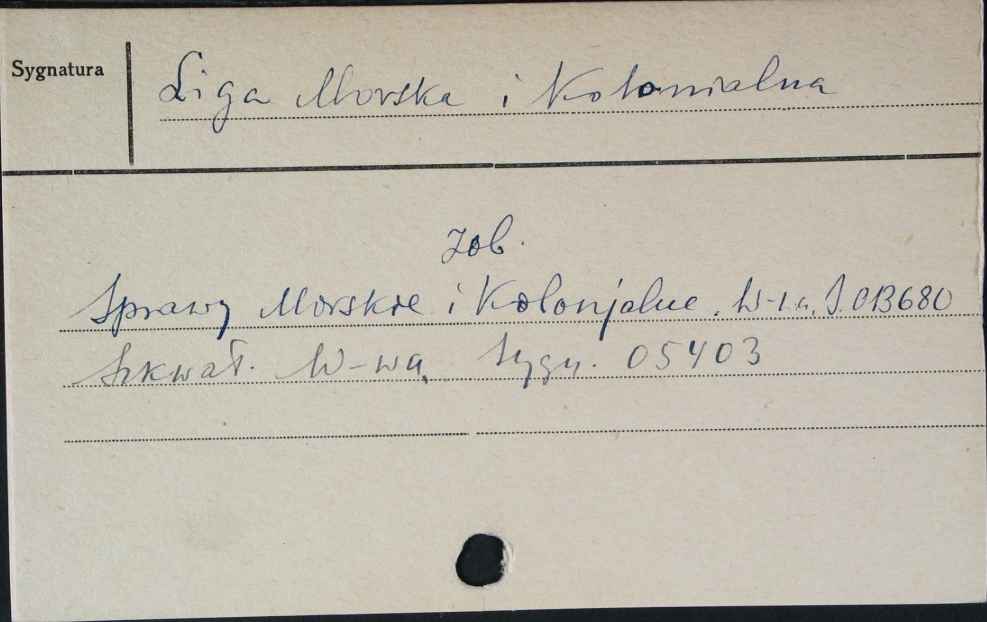 Sygnatura
Liga Morska i Kolonialna
zob.
Sprawy Morskie i Kolonjalne. W-wa. S. 013680
Szkwał. W-wa. Sygn. 05403